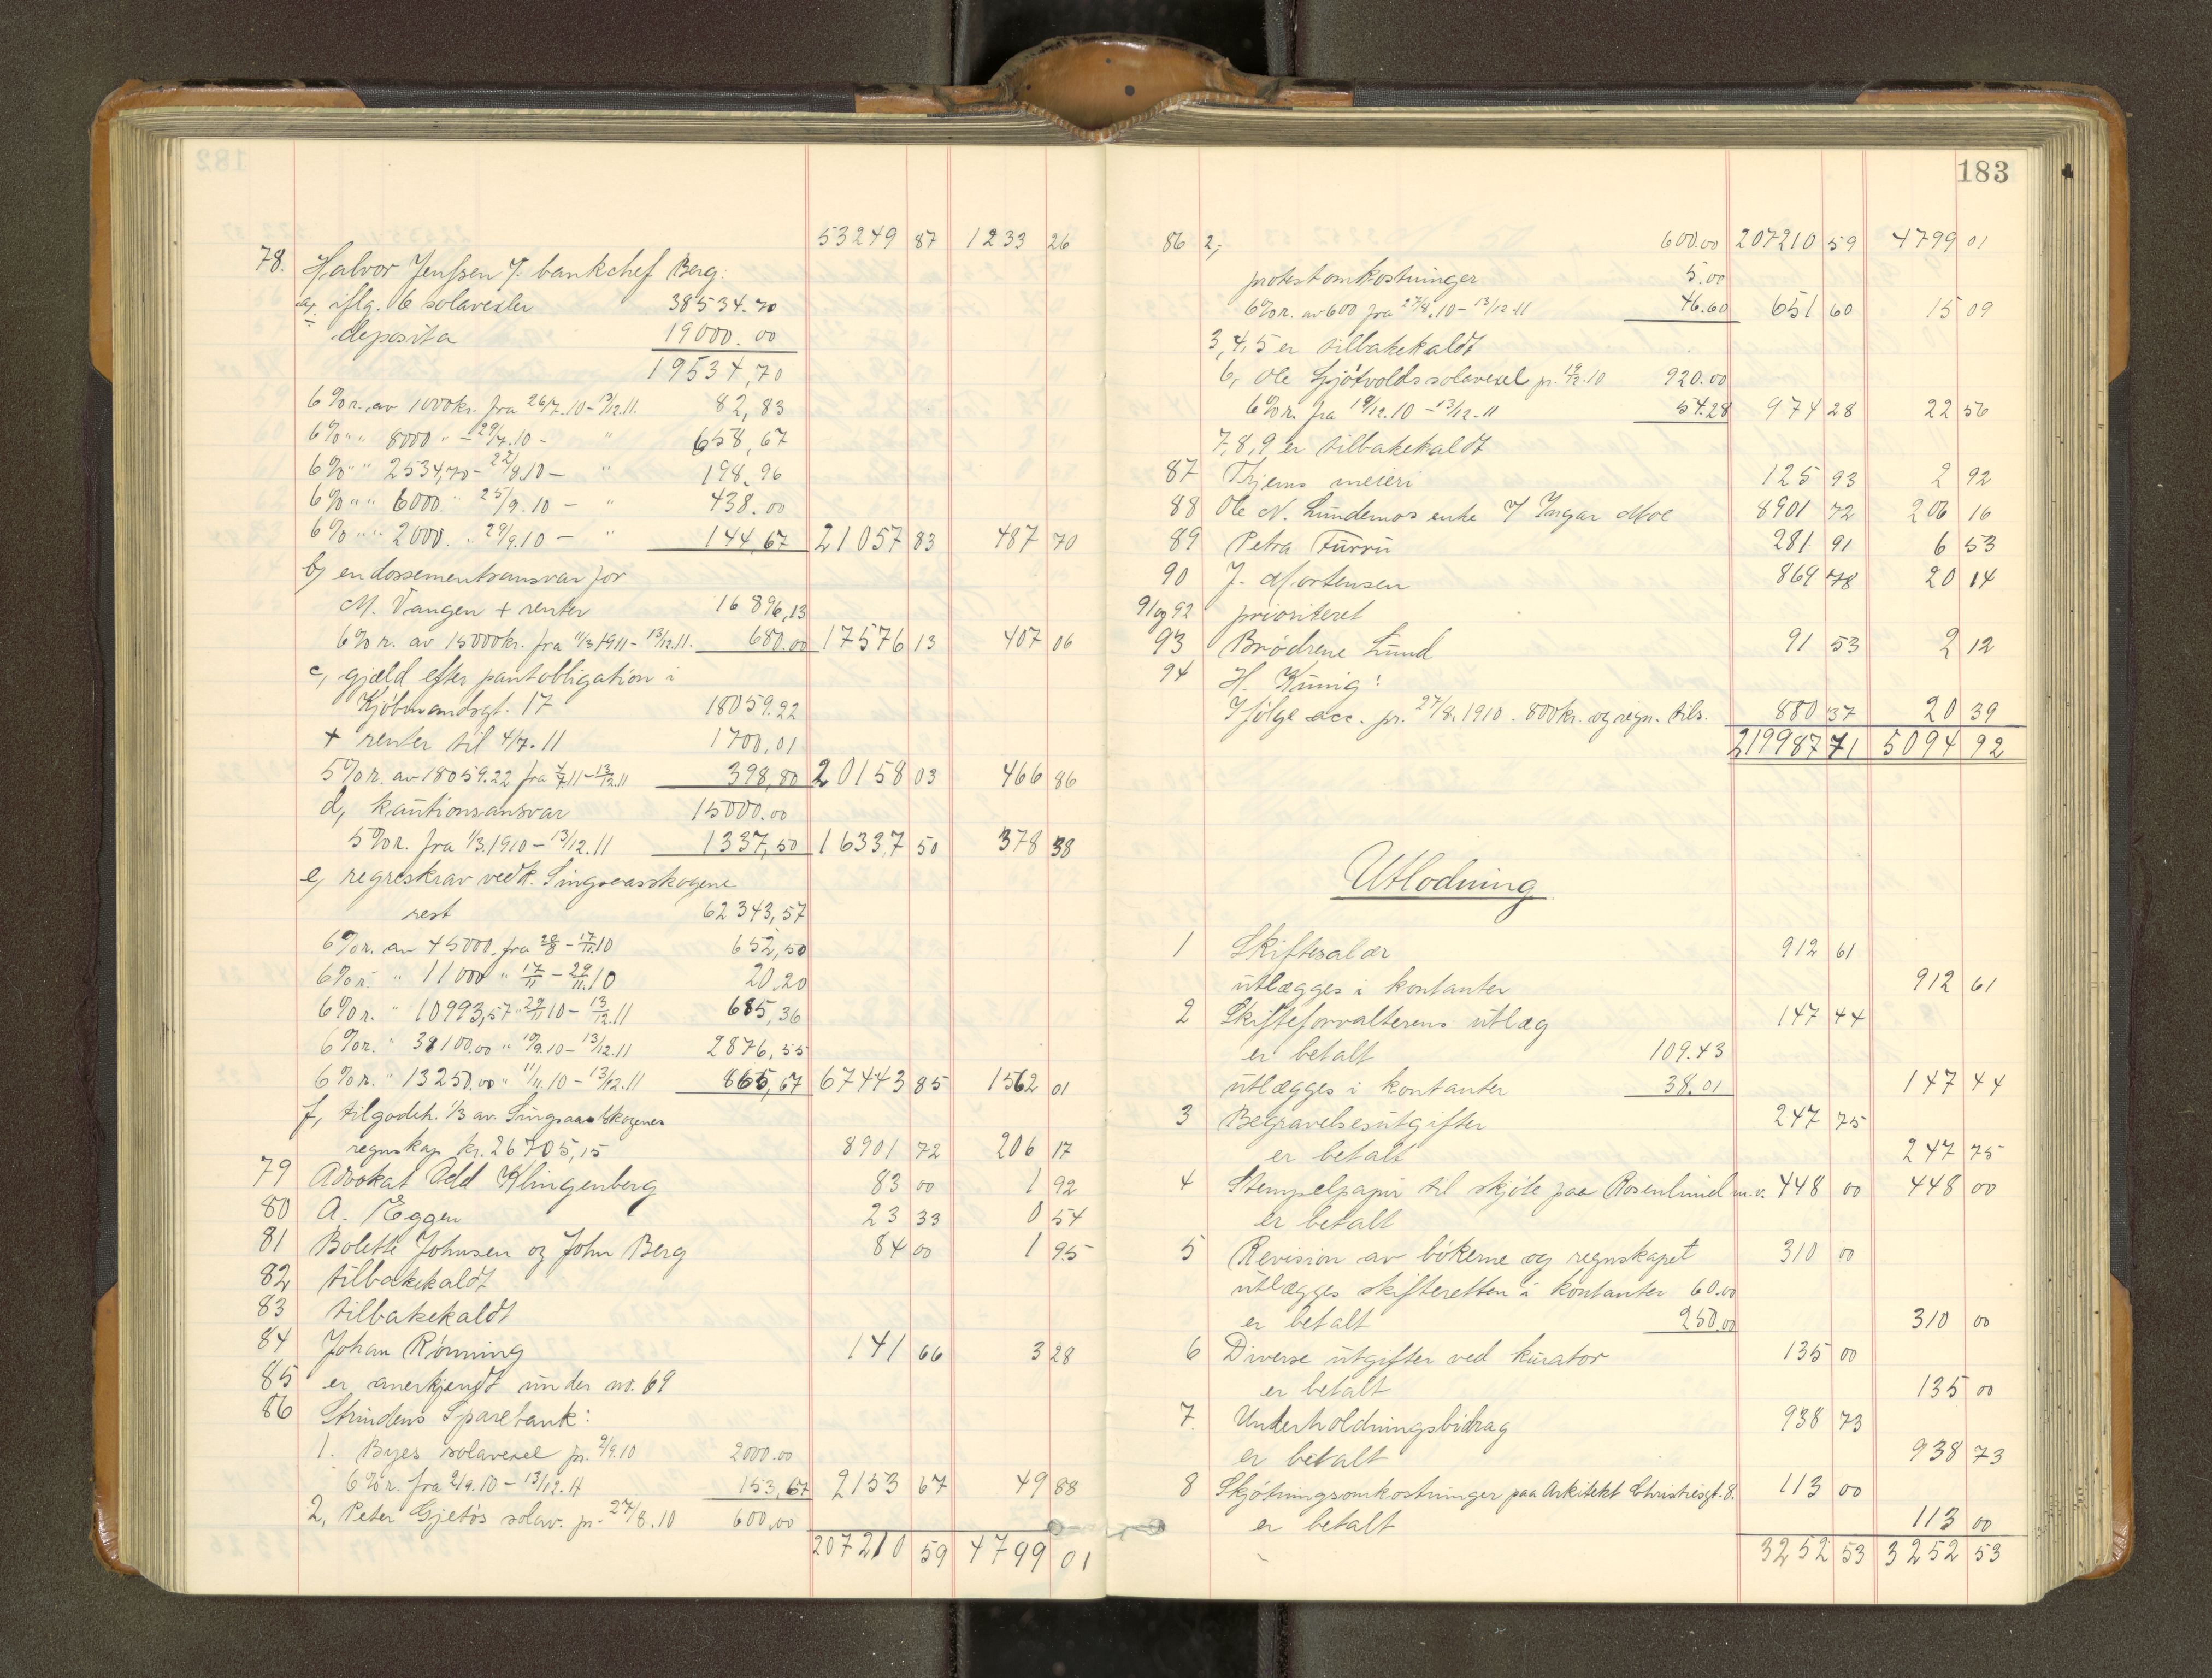 53249 87 1233 26
78. Halvor Jenssen v. bankchef Berg:
a, iflg. 6 solavexler 38534.70
÷ deposita 19000.00
19534,70
6% r. av 1000 kr. fra 26/7.10 – 13/12.11. 82,83
6% " " 8000 " – 29/7.10 – " 658,67
6% " " 2534,70 – 22/8.10 – " 198,96
6% " " 6000. " 25/9.10 – " 438.00
6% " " 2000. " 29/9.10 – " 144,67 21057 83 487 70
b, endossementsansvar for
M. Vangen + renter 16896,13
6% r. av 15000 kr. fra 11/3 1911 – 13/12.11. 680.00 17576 13 407 06
c, gjæld efter pantobligation i
Kjøbmandsgt. 17 18059.22
+ renter til 4/7.11 1700,01
5% r. av 18059.22 fra 4/7.11 – 13/12.11 398,80 20158 03 466 86
d, kautionsansvar 15000.00
5% r. fra 1/3.1910 – 13/12.11 1337,50 16337 50 378 38
e, regreskrav vedk. Singsaasskogene
rest 62343,57
6% r. av 45000. fra 20/8 – 17/11.10 652,50
6% r. " 11000 " 17/11 – 29/11.10 20.20
6% r. " 10993,57 " 29/11 10 – 13/12.11 685,36
6% r. " 38100.00 " 10/9.10 – 13/12.11 2876,55
6% r. " 13250.00 " 11/11.10 – 13/12.11 865,67 67443 85 1562 01
f, tilgodeh. 1/3 av. Singsaasskogenes
regnskap kr. 26705,15 8901 72 206 17
79 Advokat Odd Klingenberg 83 00 1 92
80 A. Eggen 23 33 0 54
81 Bolette Johnsen og John Berg 84 00 1 95
82 tilbakekaldt
83 tilbakekaldt
84 Johan Rønning 141 66 3 28
85 er anerkjendt under no. 69
86 Strindens Sparebank:
1. Byes solavexel pr. 2/9.10 2000.00
6% r. fra 2/9.10 – 13/12.11 153,67 2153 67 49 88
2, Peter Gjetøs solav. pr. 27/8.10 600,00
207210 59 4799 01
183
86 2, 600.00 207210 59 4799 01
protestomkostninger 5.00
6% r. av 600 fra 27/8.10 – 13/12.11 46.60 651 60 15 09
3, 4, 5 er tilbakekaldt
6, Ole Gjøtvolds solavexel pr. 19/12.10 920.00
6% r. fra 19/12.10 – 13/12.11 54.28 974 28 22 56
7, 8, 9 er tilbakekaldt
87 Trjems meieri 125 93 2 92
88 Ole N. Lundemos enke v Ingar Moe 8901 72 206 16
89 Petra Furru 281 91 6 53
90 J. Mortensen 869 78 20 14
91 og 92 prioritert
93 Brødrene Lund 91 53 2 12
94 H. Kunig:
Ifølge acc. pr. 27/8.1910. 800 kr. og regn. tils. 880 37 20 39
219987 71 5094 92
Utlodning
1 Skiftesalær 912 61
utlægges i kontanter 912 61
2 Skifteforvalterens utlæg 147 44
er betalt 109.43
utlægges i kontanter 38.01 147 44
3 Begravelsesutgifter 247 75
er betalt 247 75
4 Stempelpapir til skjøte paa Rosenlund m.v. 448 00 448 00
er betalt
5 Revision av bøkerne og regnskapet 310 00
utlægges skifteretten i kontanter 60.00
er betalt 250.00 310 00
6 Diverse utgifter ved kurator 135 00
er betalt 135 00
7. Underholdningsbidrag 938 73
er betalt 938 73
8 Skjøtningsomkostninger paa Arkitekt Christiesgt. 8. 113 00
er betalt 113 00
3252 53 3252 53